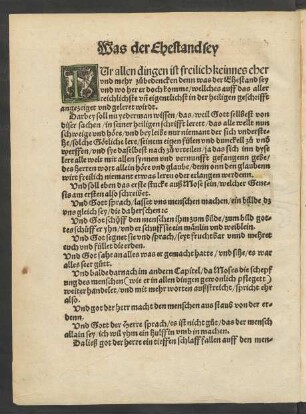 Was der Ehestand sey
Vr allen dingen ist freilich keinnes eher
vnd mehr zůbedencken denn was der Ehestand sey
vnd wo her er doch komme/ wellches auff das aller
reichlichste vñ eigentlichst in der heiligen geschrifft
angezeiget vnd geleret wirdt.
Darbey soll nu yederman wissen/ das/ weil Gott selbest von
diser sachen/ in seiner heiligen schrifft leret/ das alle wellt nun
schweige vnd höre/ vnd bey leibe nur niemant der sich vnderste-
he/ solche Götliche lere/ seinem eigen füllen vnd dunckell zů vnd
werffen/ vnd sye daselbest nach zů vrteilen/ ja das sich inn dyser
lere alle welt mit allen synnen vnd vernunfft gefangenn gebe/
des herren wort allein höre vnd glaube/ denn onn den glauben
wirt freilich niemant etwas leren oder erlangen werdenn.
Vnd soll eben das erste stucke auß Mose sein/ welcher Gene-
sis am ersten also schreibet.
Vnd Gott sprach/ lasset vns menschen machen/ ein bilde dz
vns gleich sey/ die da herschen ꝛc
Vnd Got schüff den menschen ihm zum bilde/ zum bild got-
tes/ schüff er yhn/ vnd er schuff sie ein mänlin vnd weiblein.
Vnd Got segnet sie vnd sprach/ seyt fruchtbar vnnd mehret
euch vnd füllet die erden.
Vnd Got sahe an alles was er gemacht hatte/ vnd sihe/ es war
alles seer gütt.
Vnd balde darnach im andern Capitel/ da Moses die schepf
ung des menschen/ wie er in allen dingen gewonlich pfleget
weiter handelet/ vnd mit mehr worten außstreicht/ spricht ehr
also.
Vnd got der herr macht den menschen aus staub von der er-
denn.
Vnd Gott der Herre sprach/ es ist nicht güt/ das der mensch
allain sey/ ich wil yhm ein hülffin vmb in machen.
Da ließ got der herre ein tieffen schlaff fallen auff den men-